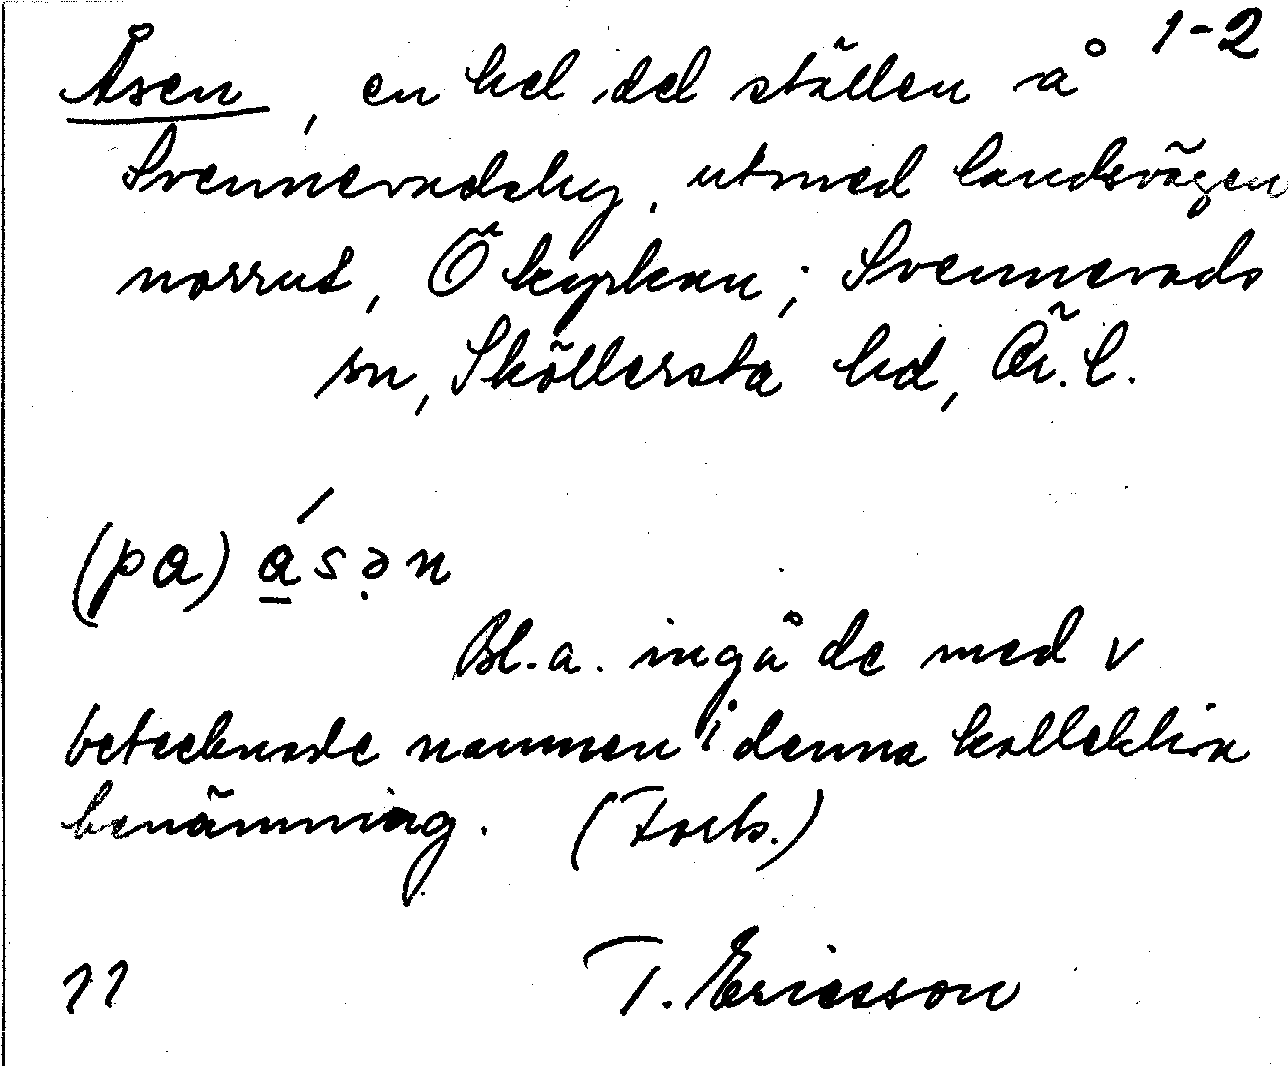 1-2
Åsen, en hel del ställen å
Svennevadsby, utmed landsvägen
norrut, Ö kyrkan; Svennevads
sn, Sköllersta hd, Ör. l.
(pa) ásə̣n
Bl.a. ingå de med v
betecknade namnen i denna kollektiva
benämning. (Torb.)
77 T. Ericsson